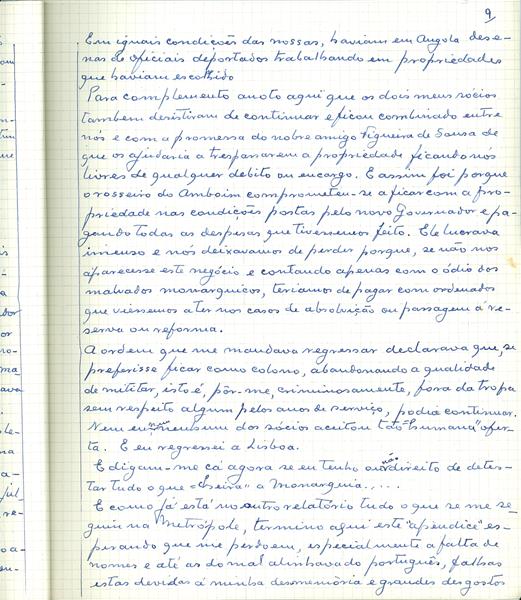 9
Em iguais condições das nossas, haviam em Angola deze-
nas de oficiais deportados trabalhando em propriedades
que haviam escolhido
Para complemento anoto aqui que os dois meus sócios
tambem desistiram de continuar e ficou combinado entre
nós e com a promessa do nobre amigo Figueira de Sousa de
que os ajudaria a trespassarem a propriedade ficando nós
livres de qualquer debito ou encargo. E assim foi porque
o rosseiro do Amboim comprometeu-se a ficar com a pro-
priedade nas condições postas pelo novo Governador e pa-
gando todas as despesas que tivessemos feito. Ele lucrava
imenso e nós deixavamos de perder porque, se não nos
aparecesse este negócio e contando apenas com o ódio dos
malvados monarquicos, teriamos de pagar com ordenados
que viessemos a ter nos casos de absolvição ou passagem á re-
serva ou reforma.
A ordem que me mandava regressar declarava que, se
preferisse ficar como colono, abandonando a qualidade
de militar, isto é, pôr-me, criminosamente, fora da tropa
sem respeito algum pelos anos de serviço, podia continuar.
Nem eu nem nenhum dos sócios aceitou tão "humana" ofer-
ta. E eu regressei a Lisboa.
E digam-me cá agora se eu tenho ou não direito de detes-
tar tudo o que "cheira" a Monarquia.....
E como já está no outro relatório tudo o que se me se-
guiu na Metrópole, termino aqui este "apendice" es-
perando que me perdoem, especialmente a falta de
nomes e até as do mal alinhavado português, falhas
estas devidas á minha desmemória e grandes desgostos